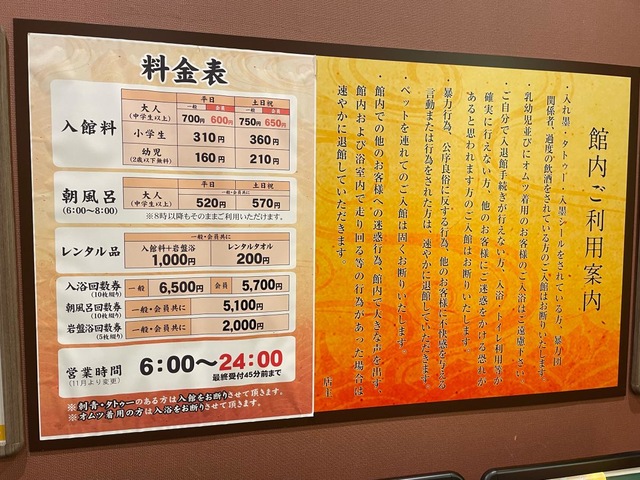 料金表
平日 土日祝
一般 会員 一般 会員
入館料
大人 (中学生以上) 700円 600円 750円 650円
小学生 310円 360円
幼児 (2歳以下無料) 160円 210円
平日 土日祝
一般・会員共に
朝風呂 (6:00〜8:00)
大人 (中学生以上) 520円 570円
※8時以降もそのままご利用いただけます。
一般・会員共に
レンタル品
入館料+岩盤浴 1,000円
レンタルタオル 200円
入浴回数券 (10枚綴り) 一般 6,500円 会員 5,700円
朝風呂回数券 (10枚綴り) 一般・会員共に 5,100円
岩盤浴回数券 (5枚綴り) 一般・会員共に 2,000円
営業時間 (11月より変更)
6:00〜24:00
最終受付45分前まで
※刺青・タトゥーのある方は入館をお断りさせて頂きます。
※オムツ着用の方は入浴をお断りさせて頂きます。
館内ご利用案内、
・入れ墨・タトゥー・入墨シールをされている方、暴力団
関係者、過度の飲酒をされている方のご入館はお断り致します
・乳幼児並びにオムツ着用のお客様のご入浴はご遠慮下さい。
・ご自分で入退館手続きが行えない方、入浴・トイレ利用等が
確実に行えない方、他のお客様にご迷惑をかける恐れが
あると思われます方のご入館はお断り致します。
・暴力行為、公序良俗に反する行為、他のお客様に不快感を与える
言動または行為をされた方は、速やかに退館していただきます。
・ペットを連れてのご入館は固くお断りいたします。
・館内での他のお客様への迷惑行為、館内で大きな声を出す、
館内および浴室内で走り回る等の行為があった場合は、
速やかに退館していただきます。
店主